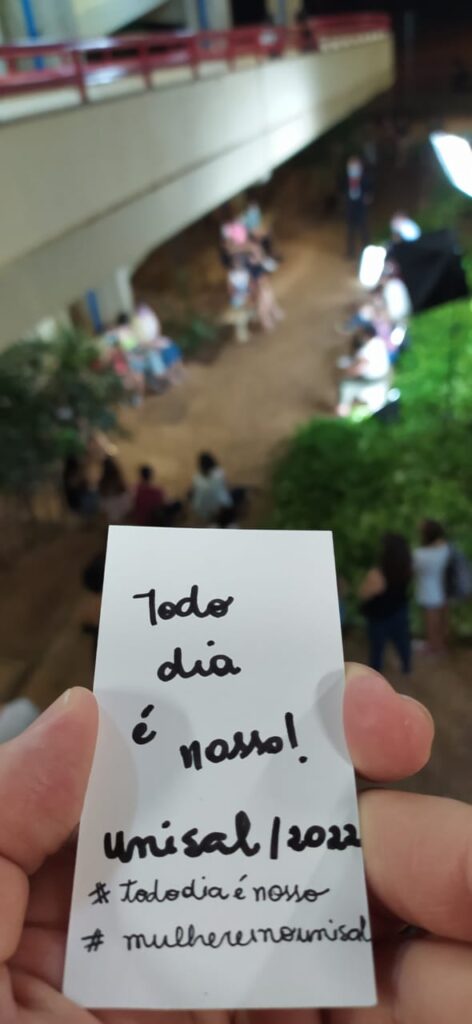 Todo
dia
é nosso!
unisal/2022
# tododiaénosso
# mulheresnounisal